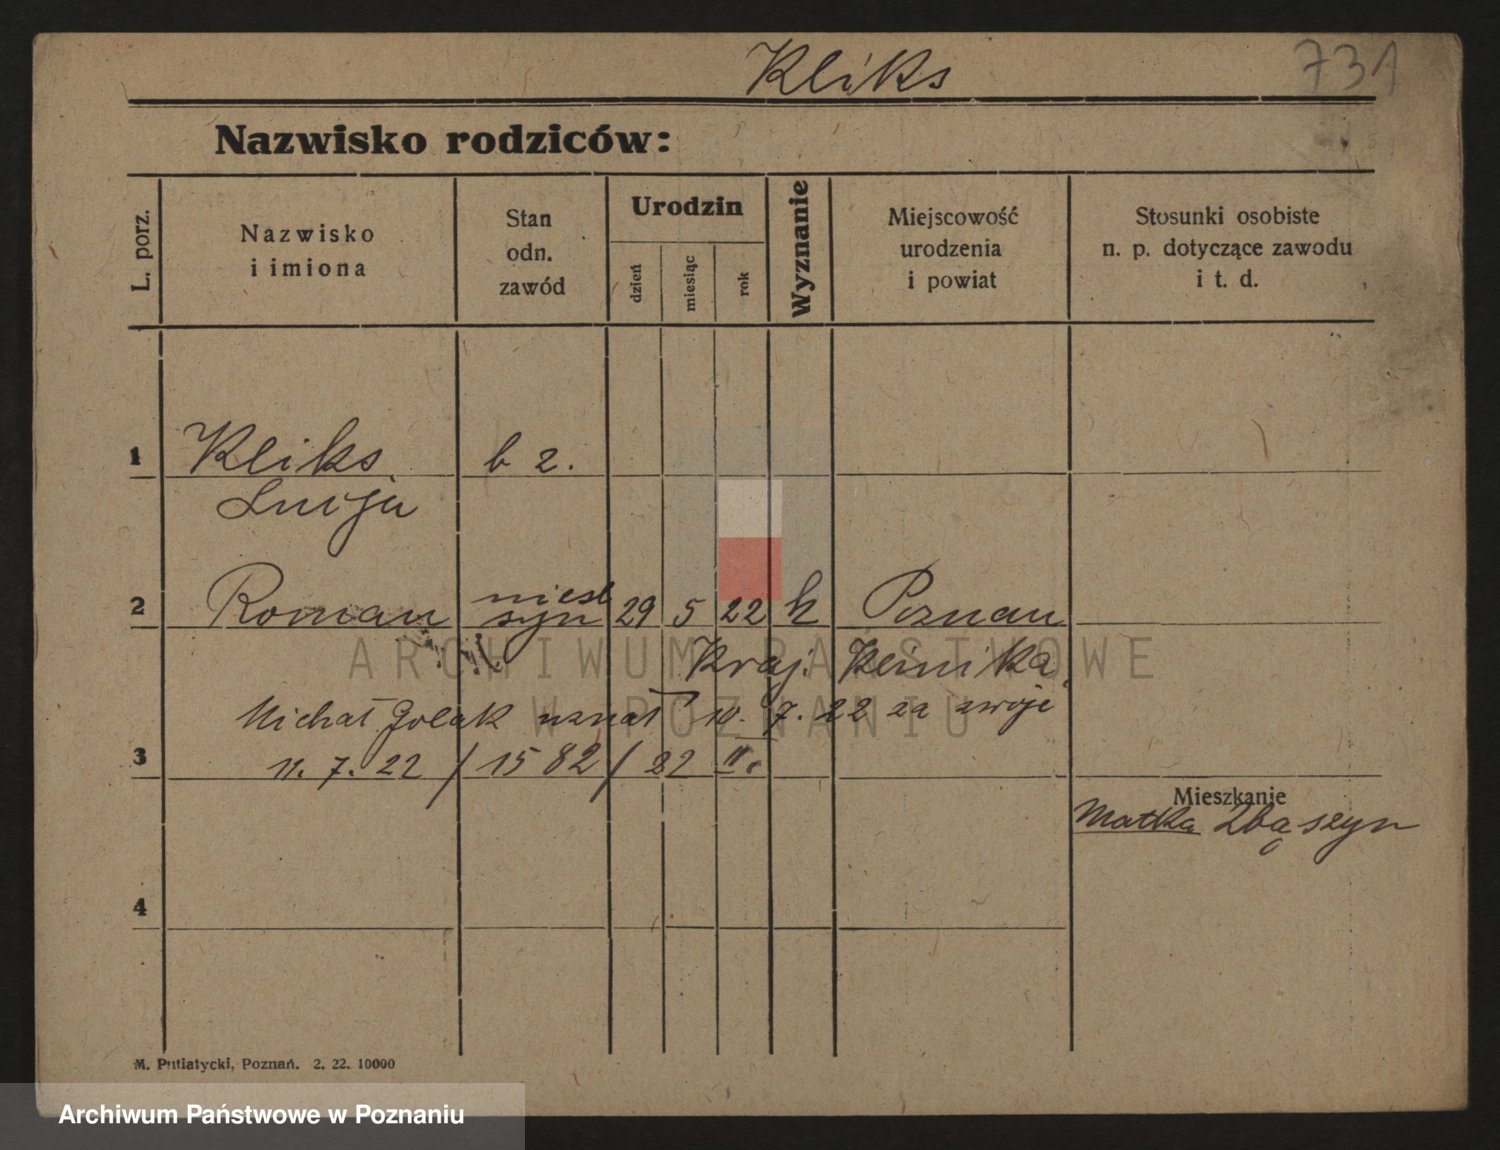 Kliks
731
Nazwisko rodziców:
L. porz.
Nazwisko
i imiona
Stan
odn.
zawód
Urodzin
dzień
miesiąc
rok
Wyznanie
Miejscowość
urodzenia
i powiat
Stosunki osobiste
n. p. dotyczące zawodu
i t. d.
1
Kliks
b z.
2
Roman
nieśl
syn
29 5 22 k Poznan
Kraj. Klinika
Michał Polak uznał 10. 7. 22 za swoje
3
11. 7. 22 / 1582 / 22 II.
Mieszkanie
Matka Zbąszyn
4
M. Putiatycki, Poznań. 2. 22. 10000
ARCHIWUM PAŃSTWOWE
W POZNANIU
Archiwum Państwowe w Poznaniu